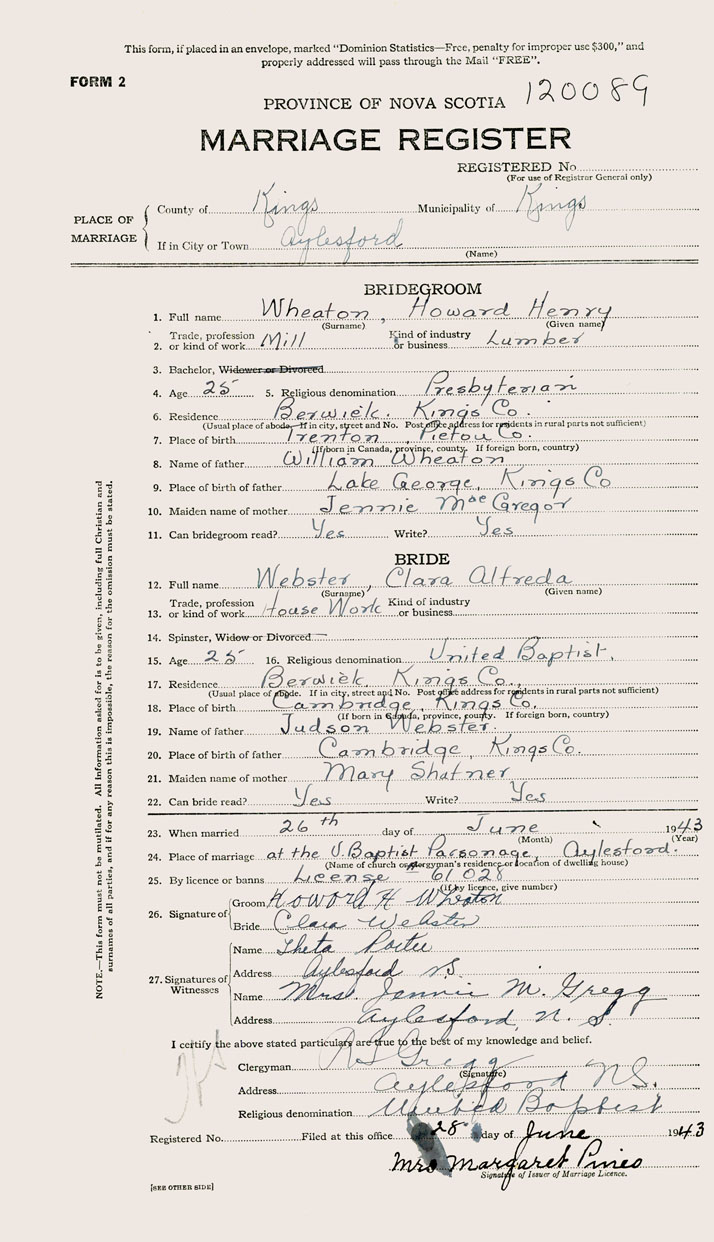 This form, if placed in an envelope, marked "Dominion Statistics—Free, penalty for improper use $300," and
properly addressed will pass through the Mail "FREE".
FORM 2
PROVINCE OF NOVA SCOTIA 120089
MARRIAGE REGISTER
REGISTERED No.
(For use of Registrar General only)
PLACE OF MARRIAGE
County of Kings Municipality of Kings
If in City or Town Aylesford
(Name)
BRIDEGROOM
1. Full name Wheaton, Howard Henry
(Surname) (Given name)
2. Trade, profession or kind of work Mill Kind of industry or business Lumber
3. Bachelor, Widower or Divorced
4. Age 25 5. Religious denomination Presbyterian
6. Residence Berwick. Kings Co.
(Usual place of abode. If in city, street and No. Post office address for residents in rural parts not sufficient)
7. Place of birth Trenton, Pictou Co.
(If born in Canada, province, county. If foreign born, country)
8. Name of father William Wheaton
9. Place of birth of father Lake George, Kings Co
10. Maiden name of mother Jennie MacGregor
11. Can bridegroom read? Yes Write? Yes
BRIDE
12. Full name Webster, Clara Alfreda
(Surname) (Given name)
13. Trade, profession or kind of work House Work Kind of industry or business
14. Spinster, Widow or Divorced
15. Age 25 16. Religious denomination United Baptist.
17. Residence Berwick Kings Co.,
(Usual place of abode. If in city, street and No. Post office address for residents in rural parts not sufficient)
18. Place of birth Cambridge, Kings Co.
(If born in Canada, province, county. If foreign born, country)
19. Name of father Judson Webster.
20. Place of birth of father Cambridge, Kings Co.
21. Maiden name of mother Mary Shatner
22. Can bride read? Yes Write? Yes
23. When married 26th day of June 1943
(Month) (Year)
24. Place of marriage at the U. Baptist Parsonage, Aylesford.
(Name of church or clergyman's residence or location of dwelling house)
25. By licence or banns License # 61028
(If by licence, give number)
26. Signature of
Groom Howard H Wheaton
Bride Clara Webster
27. Signatures of Witnesses
Name Theta Porter
Address Aylesford N.S.
Name Mrs. Jennie M. Gregg
Address Aylesford, N. S.
I certify the above stated particulars are true to the best of my knowledge and belief.
Clergyman Gregg
(Signature)
Address Aylesford N.S.
Religious denomination United Baptist
Registered No. Filed at this office 28 day of June 1943
Mrs Margaret Pineo
Signature of Issuer of Marriage Licence.
[SEE OTHER SIDE]
NOTE.—This form must not be mutilated. All Information asked for is to be given, including full Christian and
surnames of all parties, and if for any reason this is impossible, the reason for the omission must be stated.